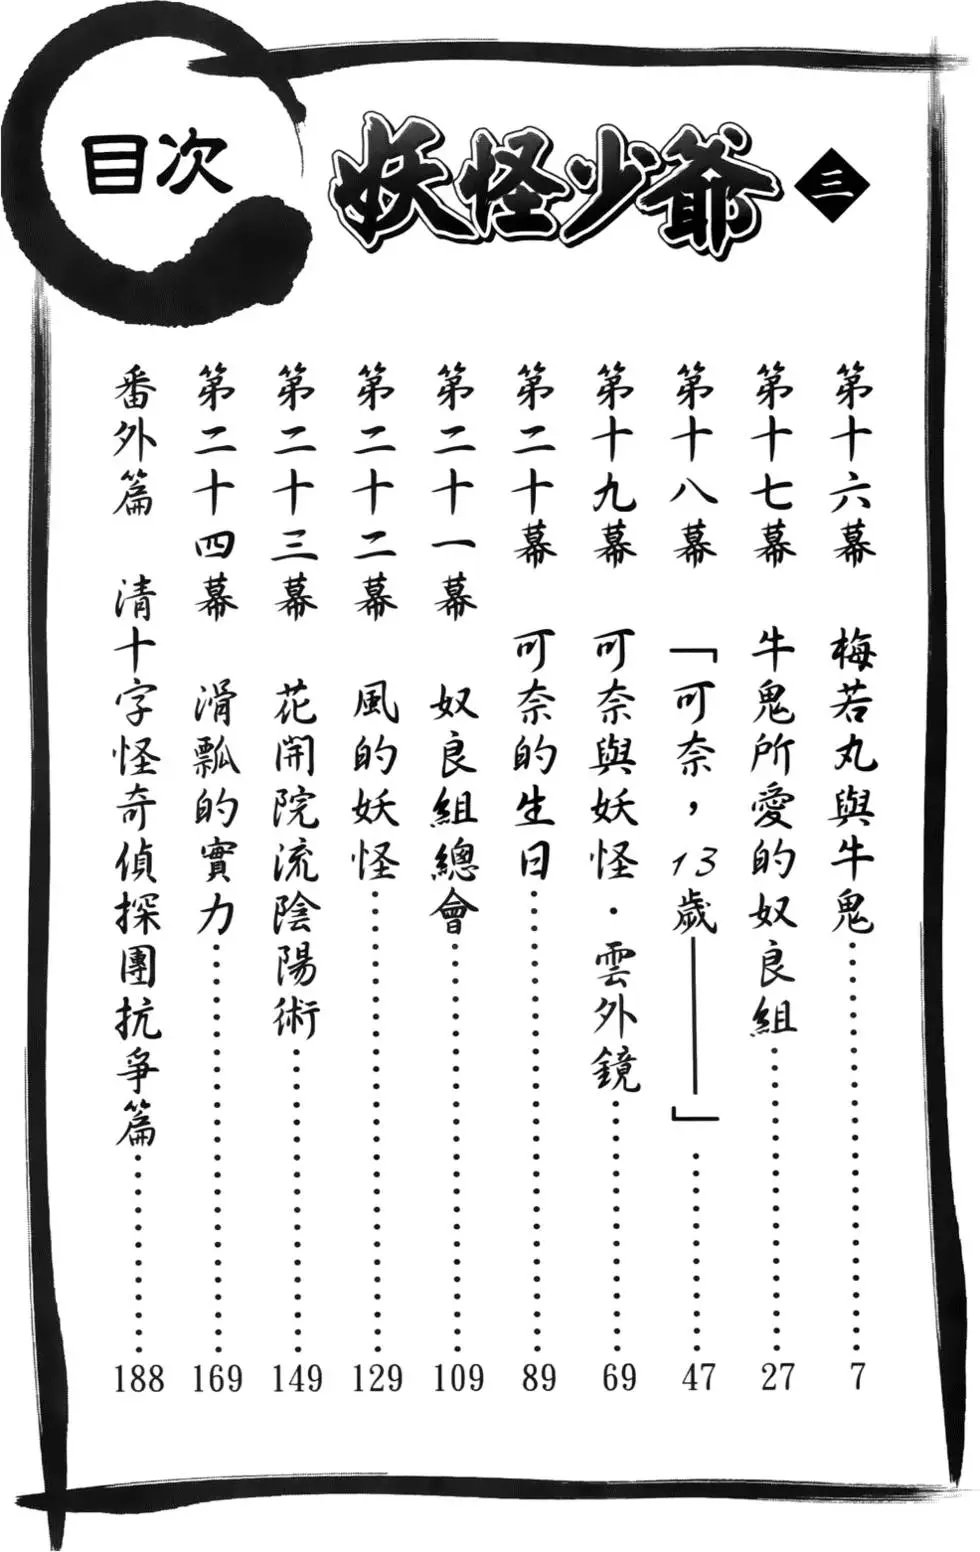 目次
妖怪少爺 三
第十六幕 梅若丸與牛鬼……7
第十七幕 牛鬼所愛的奴良組……27
第十八幕 「可奈，13歲——」……47
第十九幕 可奈與妖怪．雲外鏡……69
第二十幕 可奈的生日……89
第二十一幕 奴良組總會……109
第二十二幕 風的妖怪……129
第二十三幕 花開院流陰陽術……149
第二十四幕 滑瓢的實力……169
番外篇 清十字怪奇偵探團抗爭篇……188